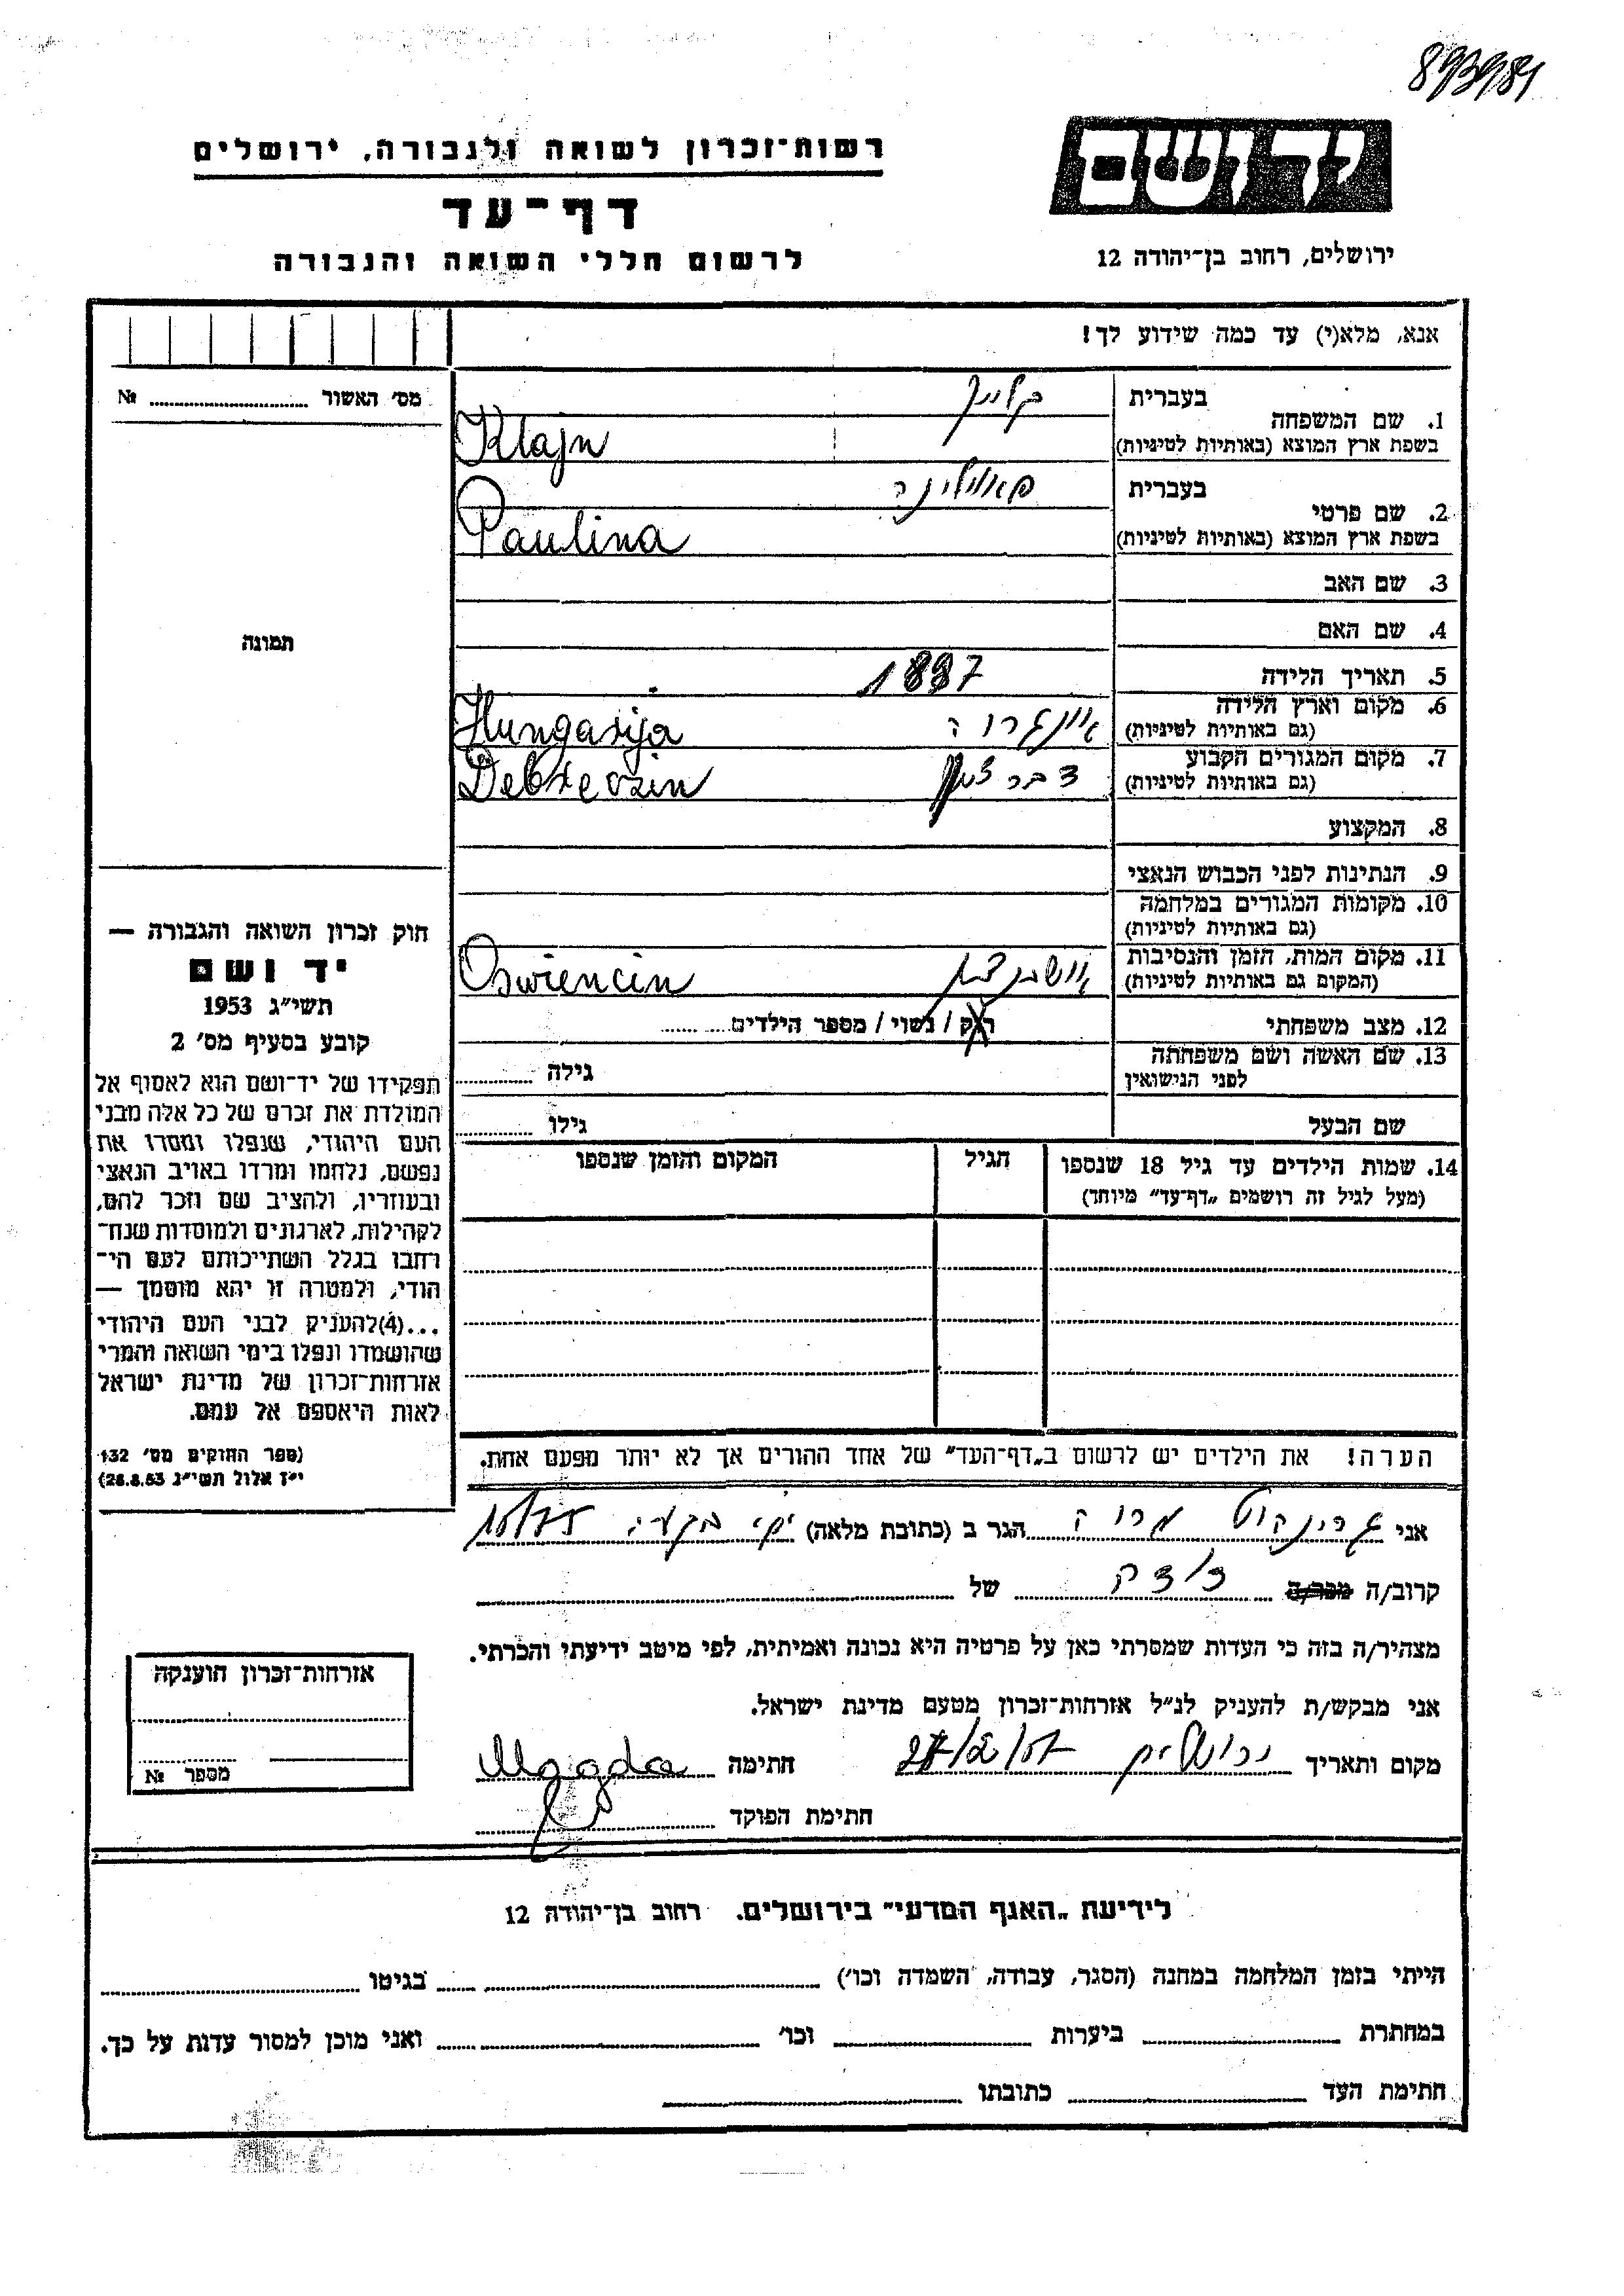 893981
ידושם
ירושלים, רחוב בן־יהודה 12
רשות־זכרון לשואה ולגבורה, ירושלים
דף־עד
לרשום חללי השואה והגבורה
אנא, מלא(י) עד כמה שידוע לך!
מס׳ האשור № ........
בעברית קליין
1. שם המשפחה
בשפת ארץ המוצא (באותיות לטיניות) Klajn
בעברית פאולינה
2. שם פרטי
בשפת ארץ המוצא (באותיות לטיניות) Paulina
3. שם האב
4. שם האם
תמונה
5. תאריך הלידה 1897
6. מקום וארץ הלידה
(גם באותיות לטיניות) Hungarija
7. מקום המגורים הקבוע
(גם באותיות לטיניות) Debreczin
8. המקצוע
9. הנתינות לפני הכבוש הנאצי
10. מקומות המגורים במלחמה
(גם באותיות לטיניות)
11. מקום המות, הזמן והנסיבות
(המקום גם באותיות לטיניות) Oswiencin
12. מצב משפחתי רוק / נשוי / מספר הילדים ........
13. שם האשה ושם משפחתה
לפני הנישואין גילה ........
שם הבעל גילו ........
14. שמות הילדים עד גיל 18 שנספו הגיל המקום והזמן שנספו
(מעל לגיל זה רושמים „דף־עד״ מיוחד)
הערה! את הילדים יש לרשום ב„דף־העד״ של אחד ההורים אך לא יותר מפעם אחת.
חוק זכרון השואה והגבורה —
יד ושם
תשי״ג 1953
קובע בסעיף מס׳ 2
תפקידו של יד־ושם הוא לאסוף אל
המולדת את זכרם של כל אלה מבני
העם היהודי, שנפלו ומסרו את
נפשם, נלחמו ומרדו באויב הנאצי
ובעוזריו, ולהציב שם וזכר להם,
לקהילות, לארגונים ולמוסדות שנח־
רחבו בגלל השתייכותם לעם הי־
הודי, ולמטרה זו יהא מוסמך —
...(4)להעניק לבני העם היהודי
שהושמדו ונפלו בימי השואה והמרי
אזרחות־זכרון של מדינת ישראל
לאות היאספם אל עמם.
(ספר החוקים מס׳ 132
י״ז אלול תשי״ג 28.8.53)
אני מרוה הגר ב (כתובת מלאה)
קרוב/ה מכר/ה של
מצהיר/ה בזה כי העדות שמסרתי כאן על פרטיה היא נכונה ואמיתית, לפי מיטב ידיעתי והכרתי.
אני מבקש/ת להעניק לנ״ל אזרחות־זכרון מטעם מדינת ישראל.
מקום ותאריך ירושלים חתימה Magda
חתימת הפוקד
אזרחות־זכרון הוענקה
מספר №
לידיעת „האגף המדעי״ בירושלים. רחוב בן־יהודה 12
הייתי בזמן המלחמה במחנה (הסגר, עבודה, השמדה וכו׳) בגיטו
במחתרת ביערות וכו׳ ואני מוכן למסור עדות על כך.
חתימת העד כתובתו